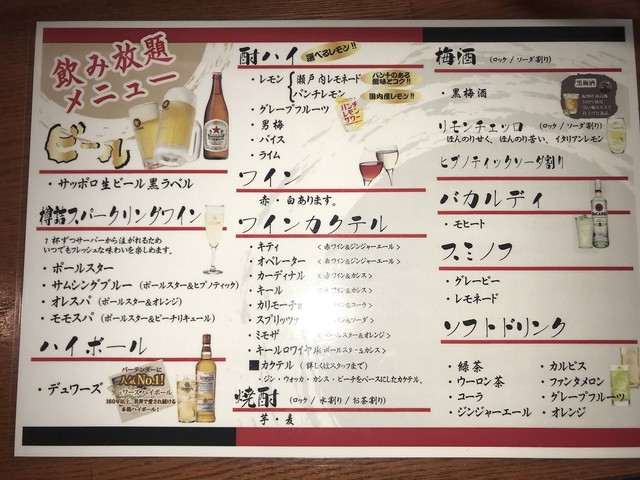 飲み放題
メニュー
ビール
・サッポロ生ビール黒ラベル
樽詰スパークリングワイン
1杯ずつサーバーから注がれるため
いつでもフレッシュな味わいを楽しめます。
・ポールスター
・サムシングブルー (ポールスター&ヒプノティック)
・オレスパ (ポールスター&オレンジ)
・モモスパ (ポールスター&ピーチリキュール)
ハイボール
・デュワーズ
バーテンダーに
人気No.1!
デュワーズハイボール
本格ハイボール!
酎ハイ
選べるレモン!!
・レモン
瀬戸内レモネード
パンチレモン
パンチのある
酸味とコク!!
国内産レモン!!
・グレープフルーツ
・男梅
・バイス
・ライム
パンチ
レモン
サワー
ワイン
赤・白あります。
ワインカクテル
・キティ <赤ワイン&ジンジャーエール>
・オペレーター <白ワイン&ジンジャーエール>
・カーディナル <赤ワイン&カシス>
・キール <白ワイン&カシス>
・カリモーチョ <赤ワイン&コーラ>
・スプリッツァ <白ワイン&ソーダ>
・ミモザ <ポールスター&オレンジ>
・キールロワイヤル <ポールスター&カシス>
■カクテル (詳しくはスタッフまで)
・ジン・ウォッカ・カシス・ピーチをベースにしたカクテル。
焼酎 (ロック/水割り/お茶割り)
芋・麦
梅酒 (ロック/ソーダ割り)
・黒梅酒
黒梅酒
リモンチェッロ (ロック/ソーダ割り)
ほんのり甘く、ほんのり苦い、イタリアンレモン
ヒプノティックソーダ割り
バカルディ
・モヒート
スミノフ
・グレーピー
・レモネード
ソフトドリンク
・緑茶
・ウーロン茶
・コーラ
・ジンジャーエール
・カルピス
・ファンタメロン
・グレープフルーツ
・オレンジ